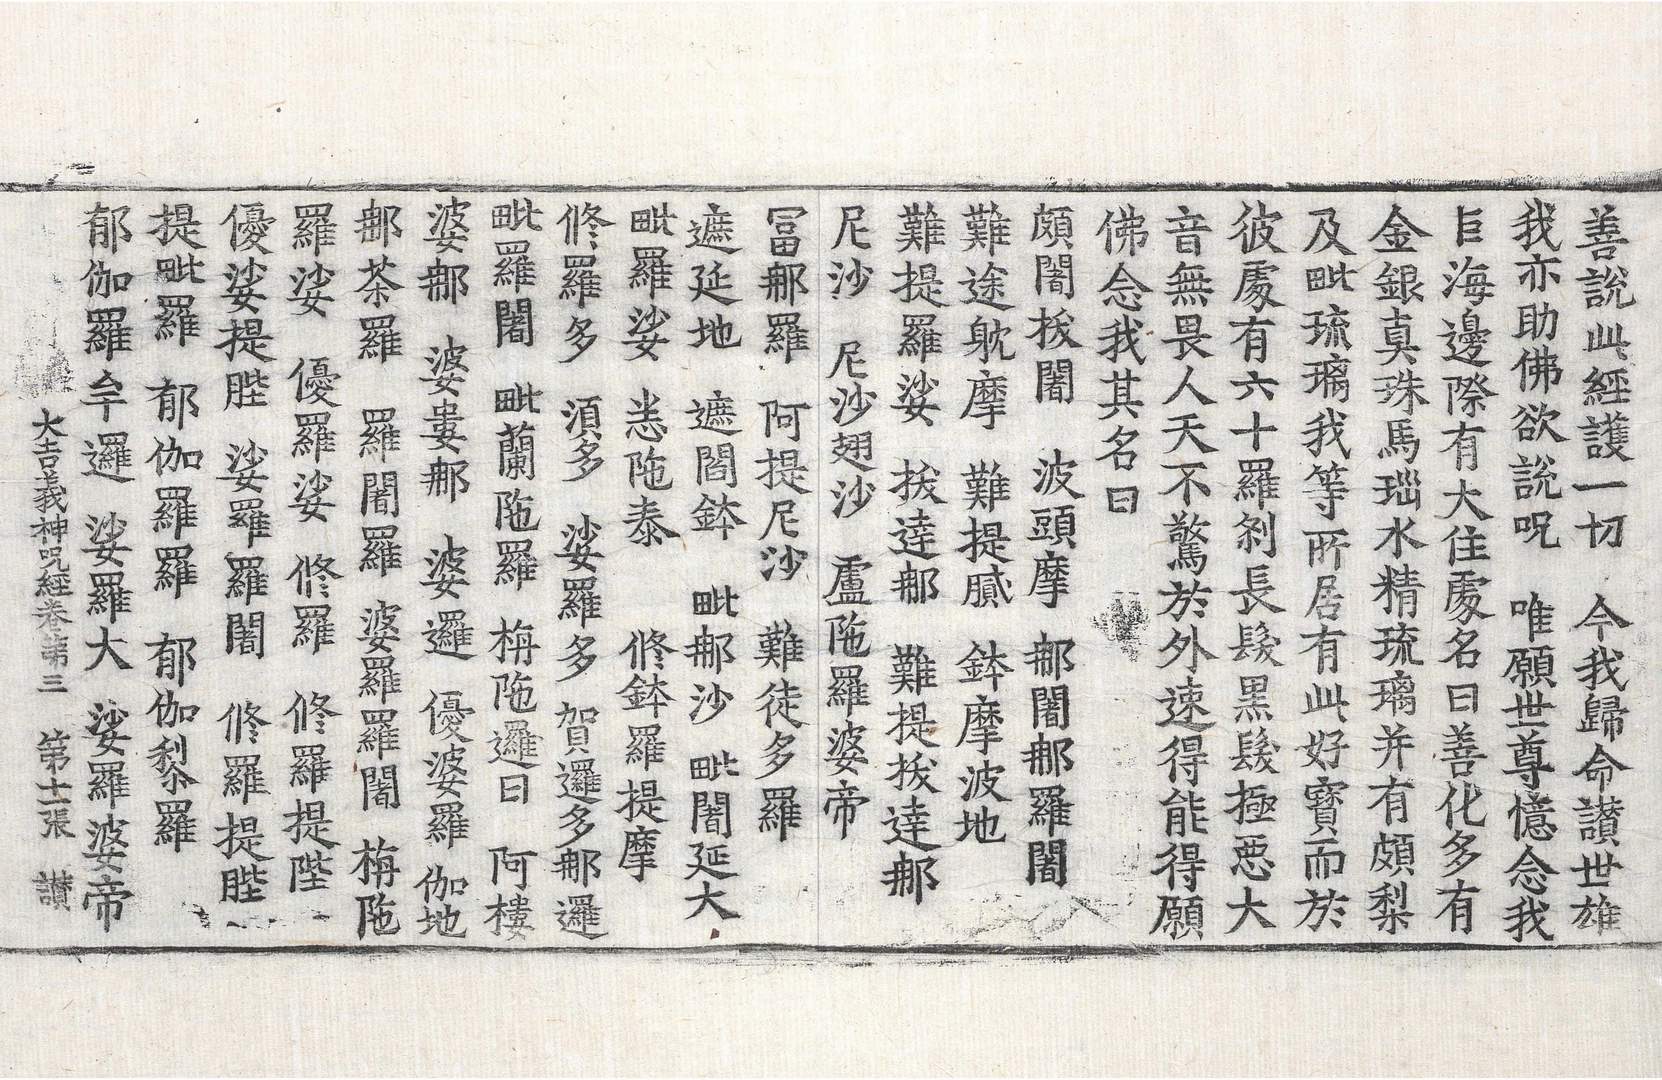 善說此經護一切　今我歸命讃世雄
我亦助佛欲說呪　唯願世尊憶念我
巨海邊際有大住處名曰善化多有
金銀真珠馬瑙水精琉璃并有頗梨
及毗琉璃我等所居有此好寶而於
彼處有六十羅剎長髮黑髮極惡大
音無畏人天不驚於外速得能得願
佛念我其名曰
頗闍拔闍　波頭摩　那闍那羅闍
難途躭摩　難提膩　鉢摩波地
難提羅娑　拔達那　難提拔達那
尼沙　尼沙翅沙　盧陁羅婆帝
冨那羅　阿提尼沙　難徒多羅
遮延地　遮閻鉢　毗那沙　毗闍延大
毗羅娑　恙陁泰　修鉢羅提摩
修羅多　湏多　娑羅多　賀邏多那邏
毗羅闍　毗蘭陁羅　栴陁邏曰　阿樓
婆那　婆婁那　婆邏　優婆羅　伽地
那茶羅　羅闍羅　婆羅羅闍　栴陁
羅娑　優羅娑　修羅　修羅提陛
優娑提陛　娑羅羅闍　修羅提陛
提毗羅　郁伽羅羅　郁伽梨羅
郁伽羅牟邏　娑羅大　娑羅婆帝
大吉義神呪經卷第三　第十一張　讃